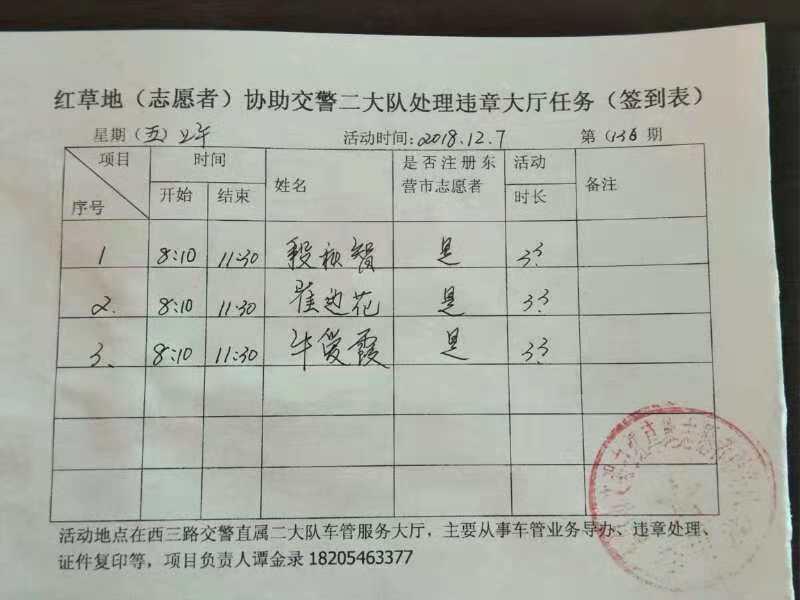 红草地（志愿者）协助交警二大队处理违章大厅任务（签到表）
星期（五）上午 活动时间：2018.12.7 第（136 期
项目 时间 姓名 是否注册东 活动 备注
序号 开始 结束 营市志愿者 时长
1 8:10 11:30 段 智 是 3.3
2. 8:10 11:30 崔 花 是 3.3
3. 8:10 11:30 牛爱霞 是 3.3
活动地点在西三路交警直属二大队车管服务大厅，主要从事车管业务导办、违章处理、
证件复印等，项目负责人谭金录 18205463377